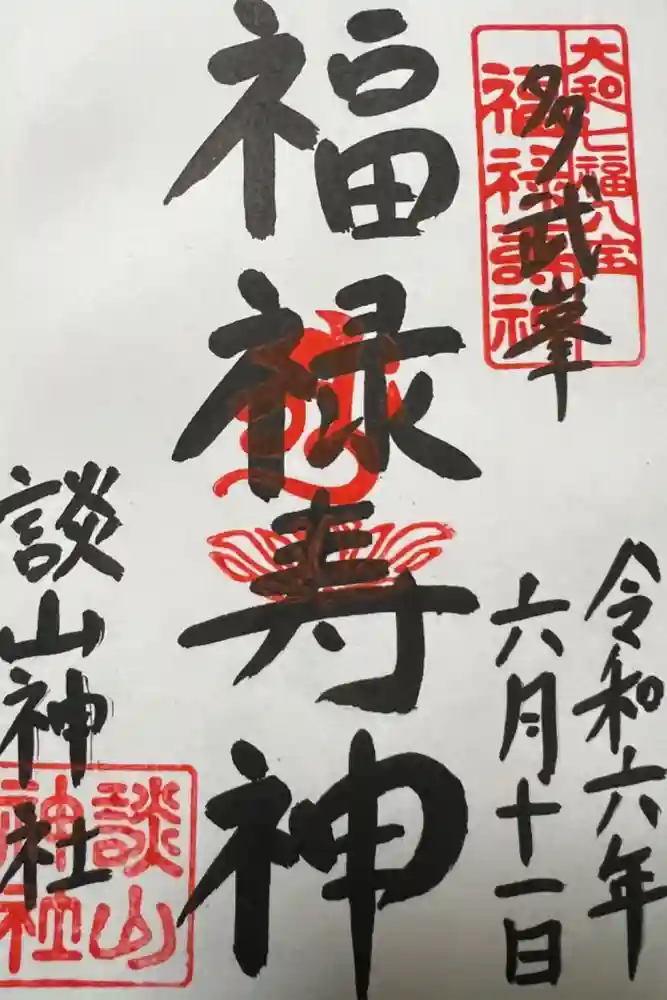 多武峯
大和七福八宝
福禄壽神
令和六年
六月十一日
福禄寿神
談山神社
談山
神社